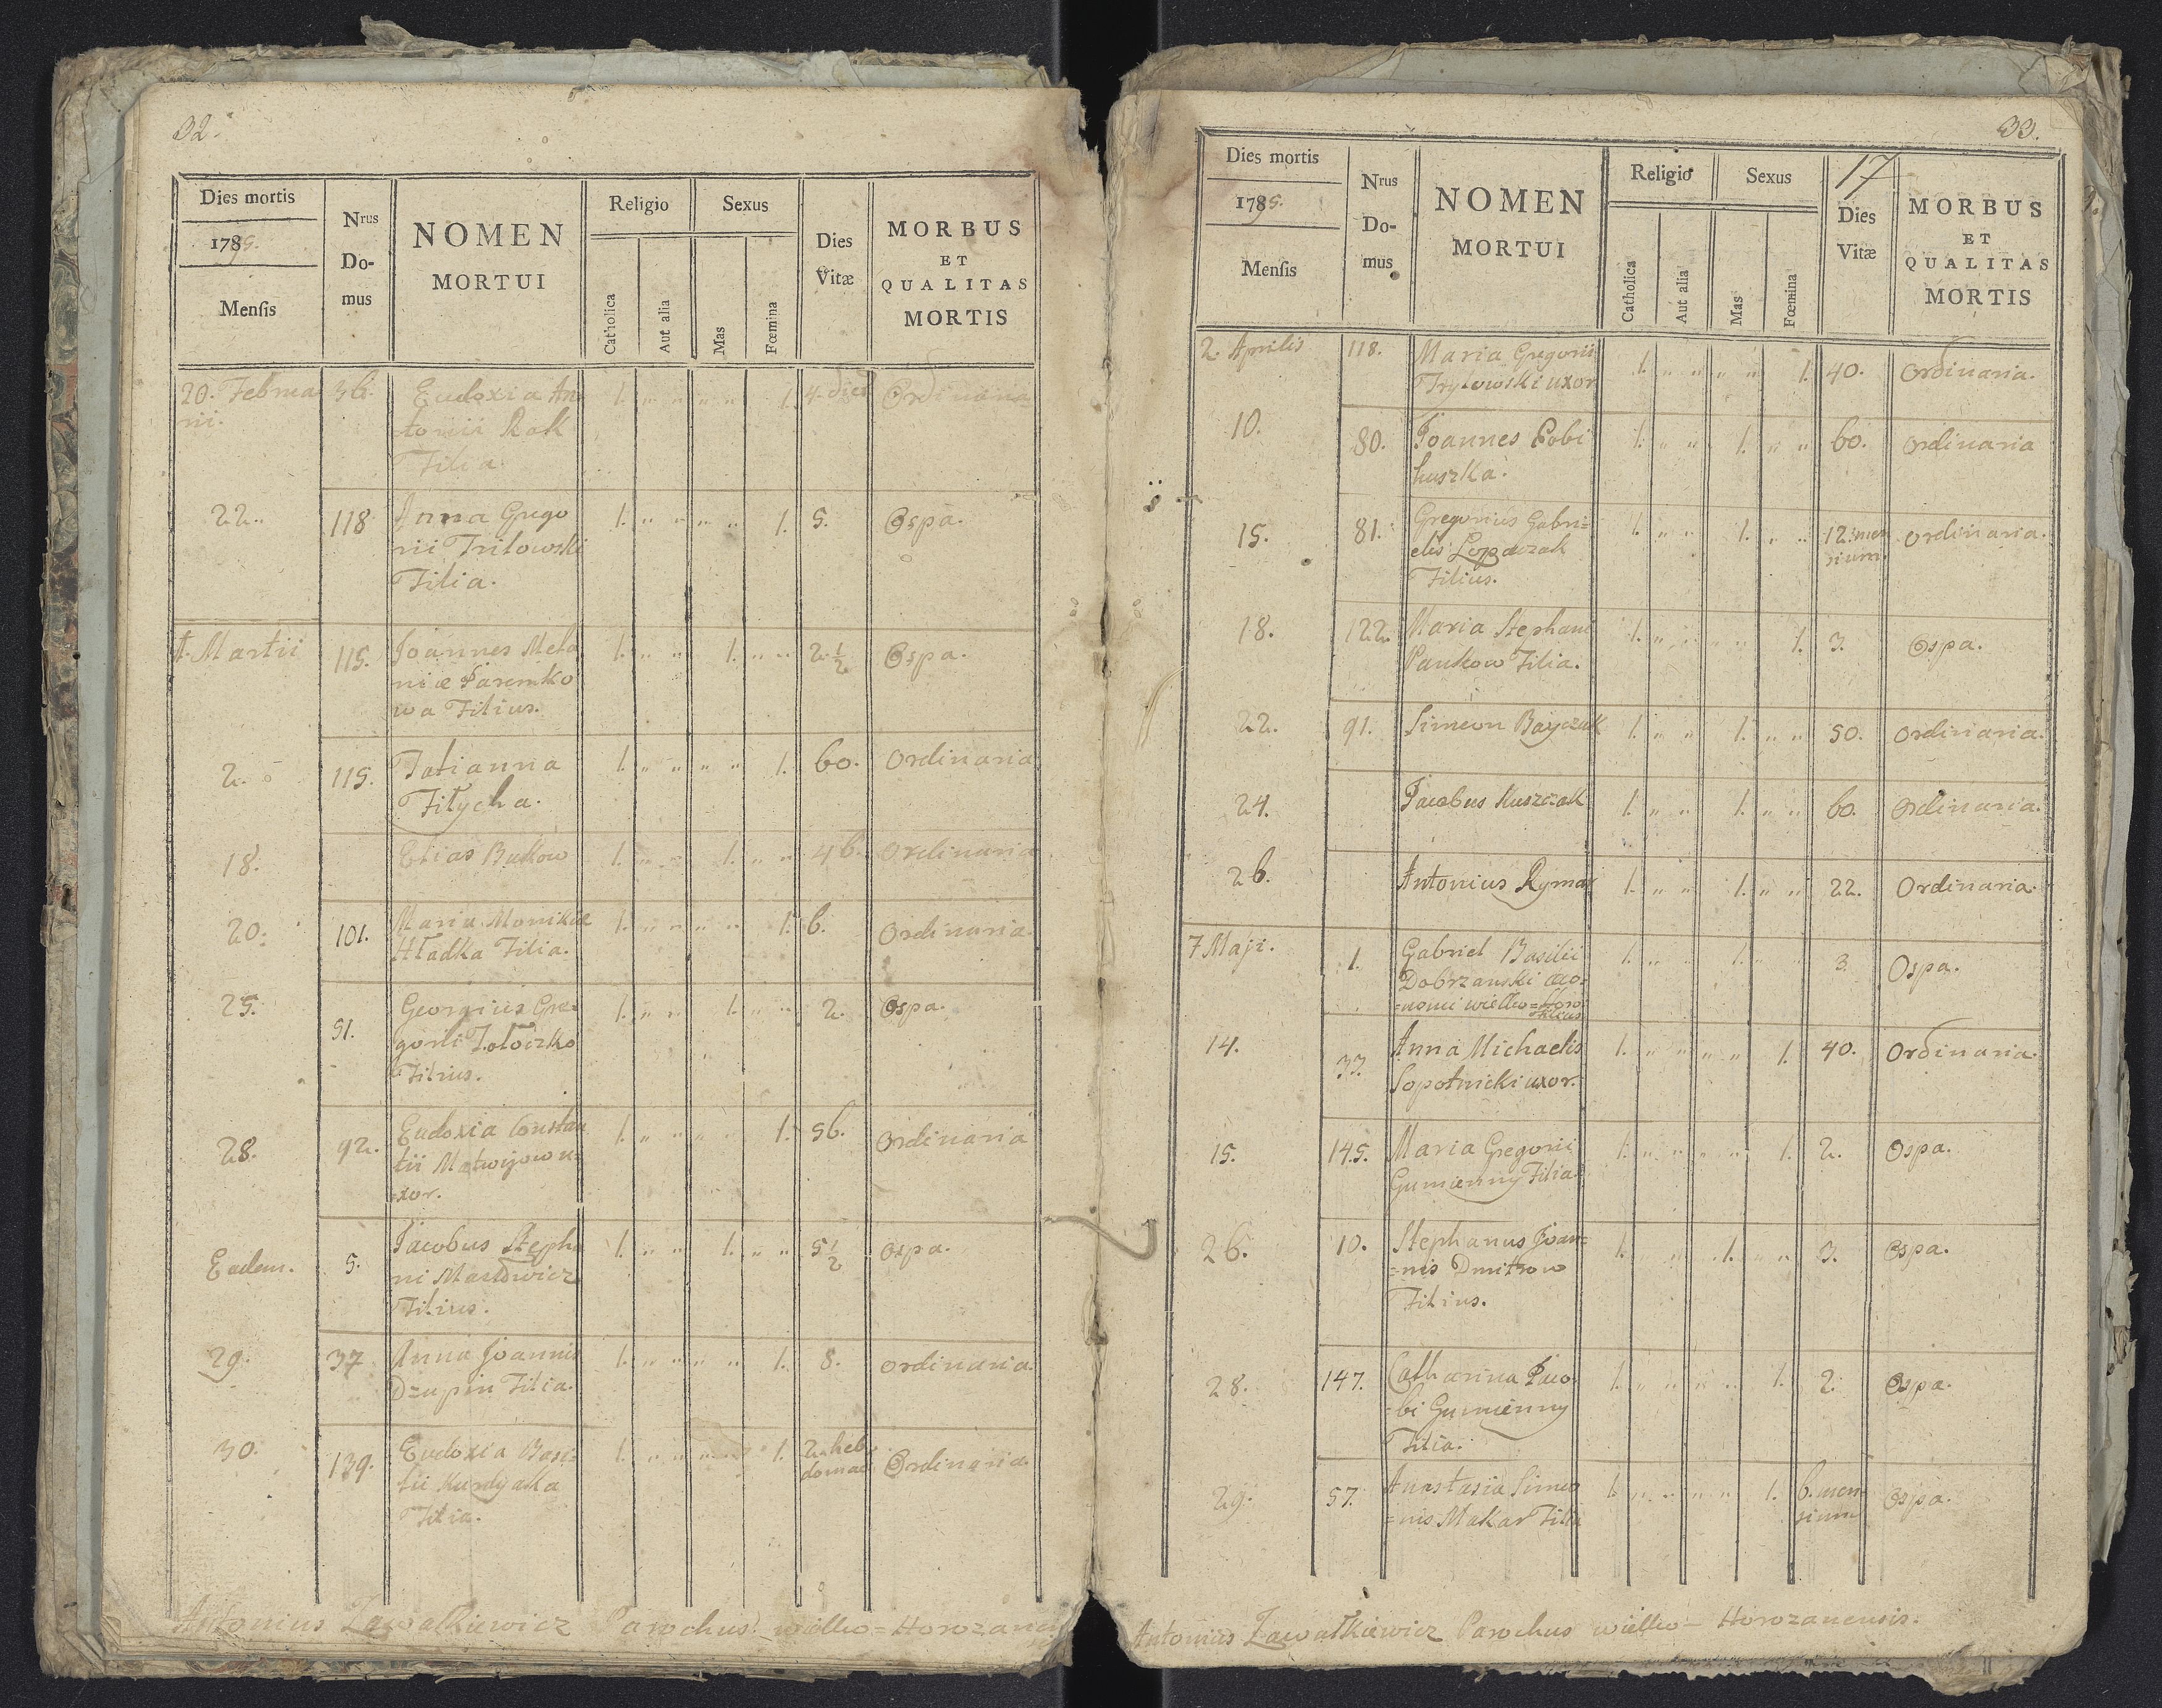 32.
Dies mortis
1789.
Mensis
Nrus
Do-
mus
NOMEN
MORTUI
Religio
Catholica
Aut alia
Sexus
Mas
Fœmina
Dies
Vitæ
MORBUS
ET
QUALITAS
MORTIS
20. Februa 36. Eudoxia An 1. " " " " 1. 4. dies Ordinaria
rii. tonii Rak
Filia
22. 118 Anna Grego 1. " " " " 1. 5. Ospa.
rii Tritowski
Filia.
1. Martii 115. Joannes Mela 1. " " 1. " " 2 1/2 Ospa.
niæ Paremko
wa Filius.
2. 115. Tatianna 1. " " " " 1. 60. Ordinaria
Fitycha.
18. Elias Bukow 1. " " 1. " " 46. Ordinaria
20. 101. Maria Monikæ 1. " " " " 1. 6. Ordinaria.
Hładka Filia.
25. 51. Georgius Gre= 1. " " 1. " " 2. Ospa.
gorii Zołoczko
Filius.
28. 92. Eudoxia Constan 1. " " " " 1. 56. Ordinaria
tii Matwijow u=
=xor.
Eadem. 5. Jacobus Stepha 1. " " 1. " " 5 1/2 Ospa.
ni Masłowicz
Filius.
29. 37 Anna Joannis 1. " " " " 1. 8. ordinaria.
Dzupin Filia.
30. 139. Eudoxia Basi= 1. " " " " 1. 2. heb Ordinaria.
lii Kurdyałka domad
Filia.
Antonius Zawałkiewicz Parochus wielko=Horozanen
33.
Dies mortis
1789.
Mensis
Nrus
Do-
mus
NOMEN
MORTUI
Religio
Catholica
Aut alia
Sexus
Mas
Fœmina
17
Dies
Vitæ
MORBUS
ET
QUALITAS
MORTIS
2. Aprilis 118. Maria Gregorii 1. " " " " 1. 40. Ordinaria.
Trytowski uxor
10. 80. Joannes Pobi 1. " " 1. " " 60. Ordinaria
huszka.
15. 81. Gregorius Gabri= 1. " " 1. " " 12. men ordinaria.
elis Lopaczak sium.
Filius.
18. 122. Maria Stephani 1. " " " " 1. 3. Ospa.
Pankow Filia.
22. 91. Simeon Bayczuk 1. " " 1. " " 50. Ordinaria.
24. Jacobus Kuszczak 1. " " 1. " " 60. Ordinaria.
26. Antonius Rymar 1. " " 1. " " 22. Ordinaria.
7 Maji. 1. Gabriel Basilii 1. " " 1. " " 3. Ospa.
Dobrzanski œco=
=nomi wielko=Horo
Filius
14. 33. Anna Michaelis 1. " " " " 1. 40. Ordinaria.
Sopotnicki uxor.
15. 145. Maria Gregorii 1. " " " " 1. 2. Ospa.
Gumienny Filia.
26. 10. Stephanus Joan= 1. " " 1. " " 3. Ospa.
=nis Dmitrow
Filius.
28. 147. Catharina Jaco 1. " " " " 1. 2. Ospa.
=bi Gumienny
Filia.
29. 57. Anastasia Simeo 1. " " " " 1. 6. men Ospa.
=nis Makar Filia sium
Antonius Zawałkiewicz Parochus wielko-Horozanensis.